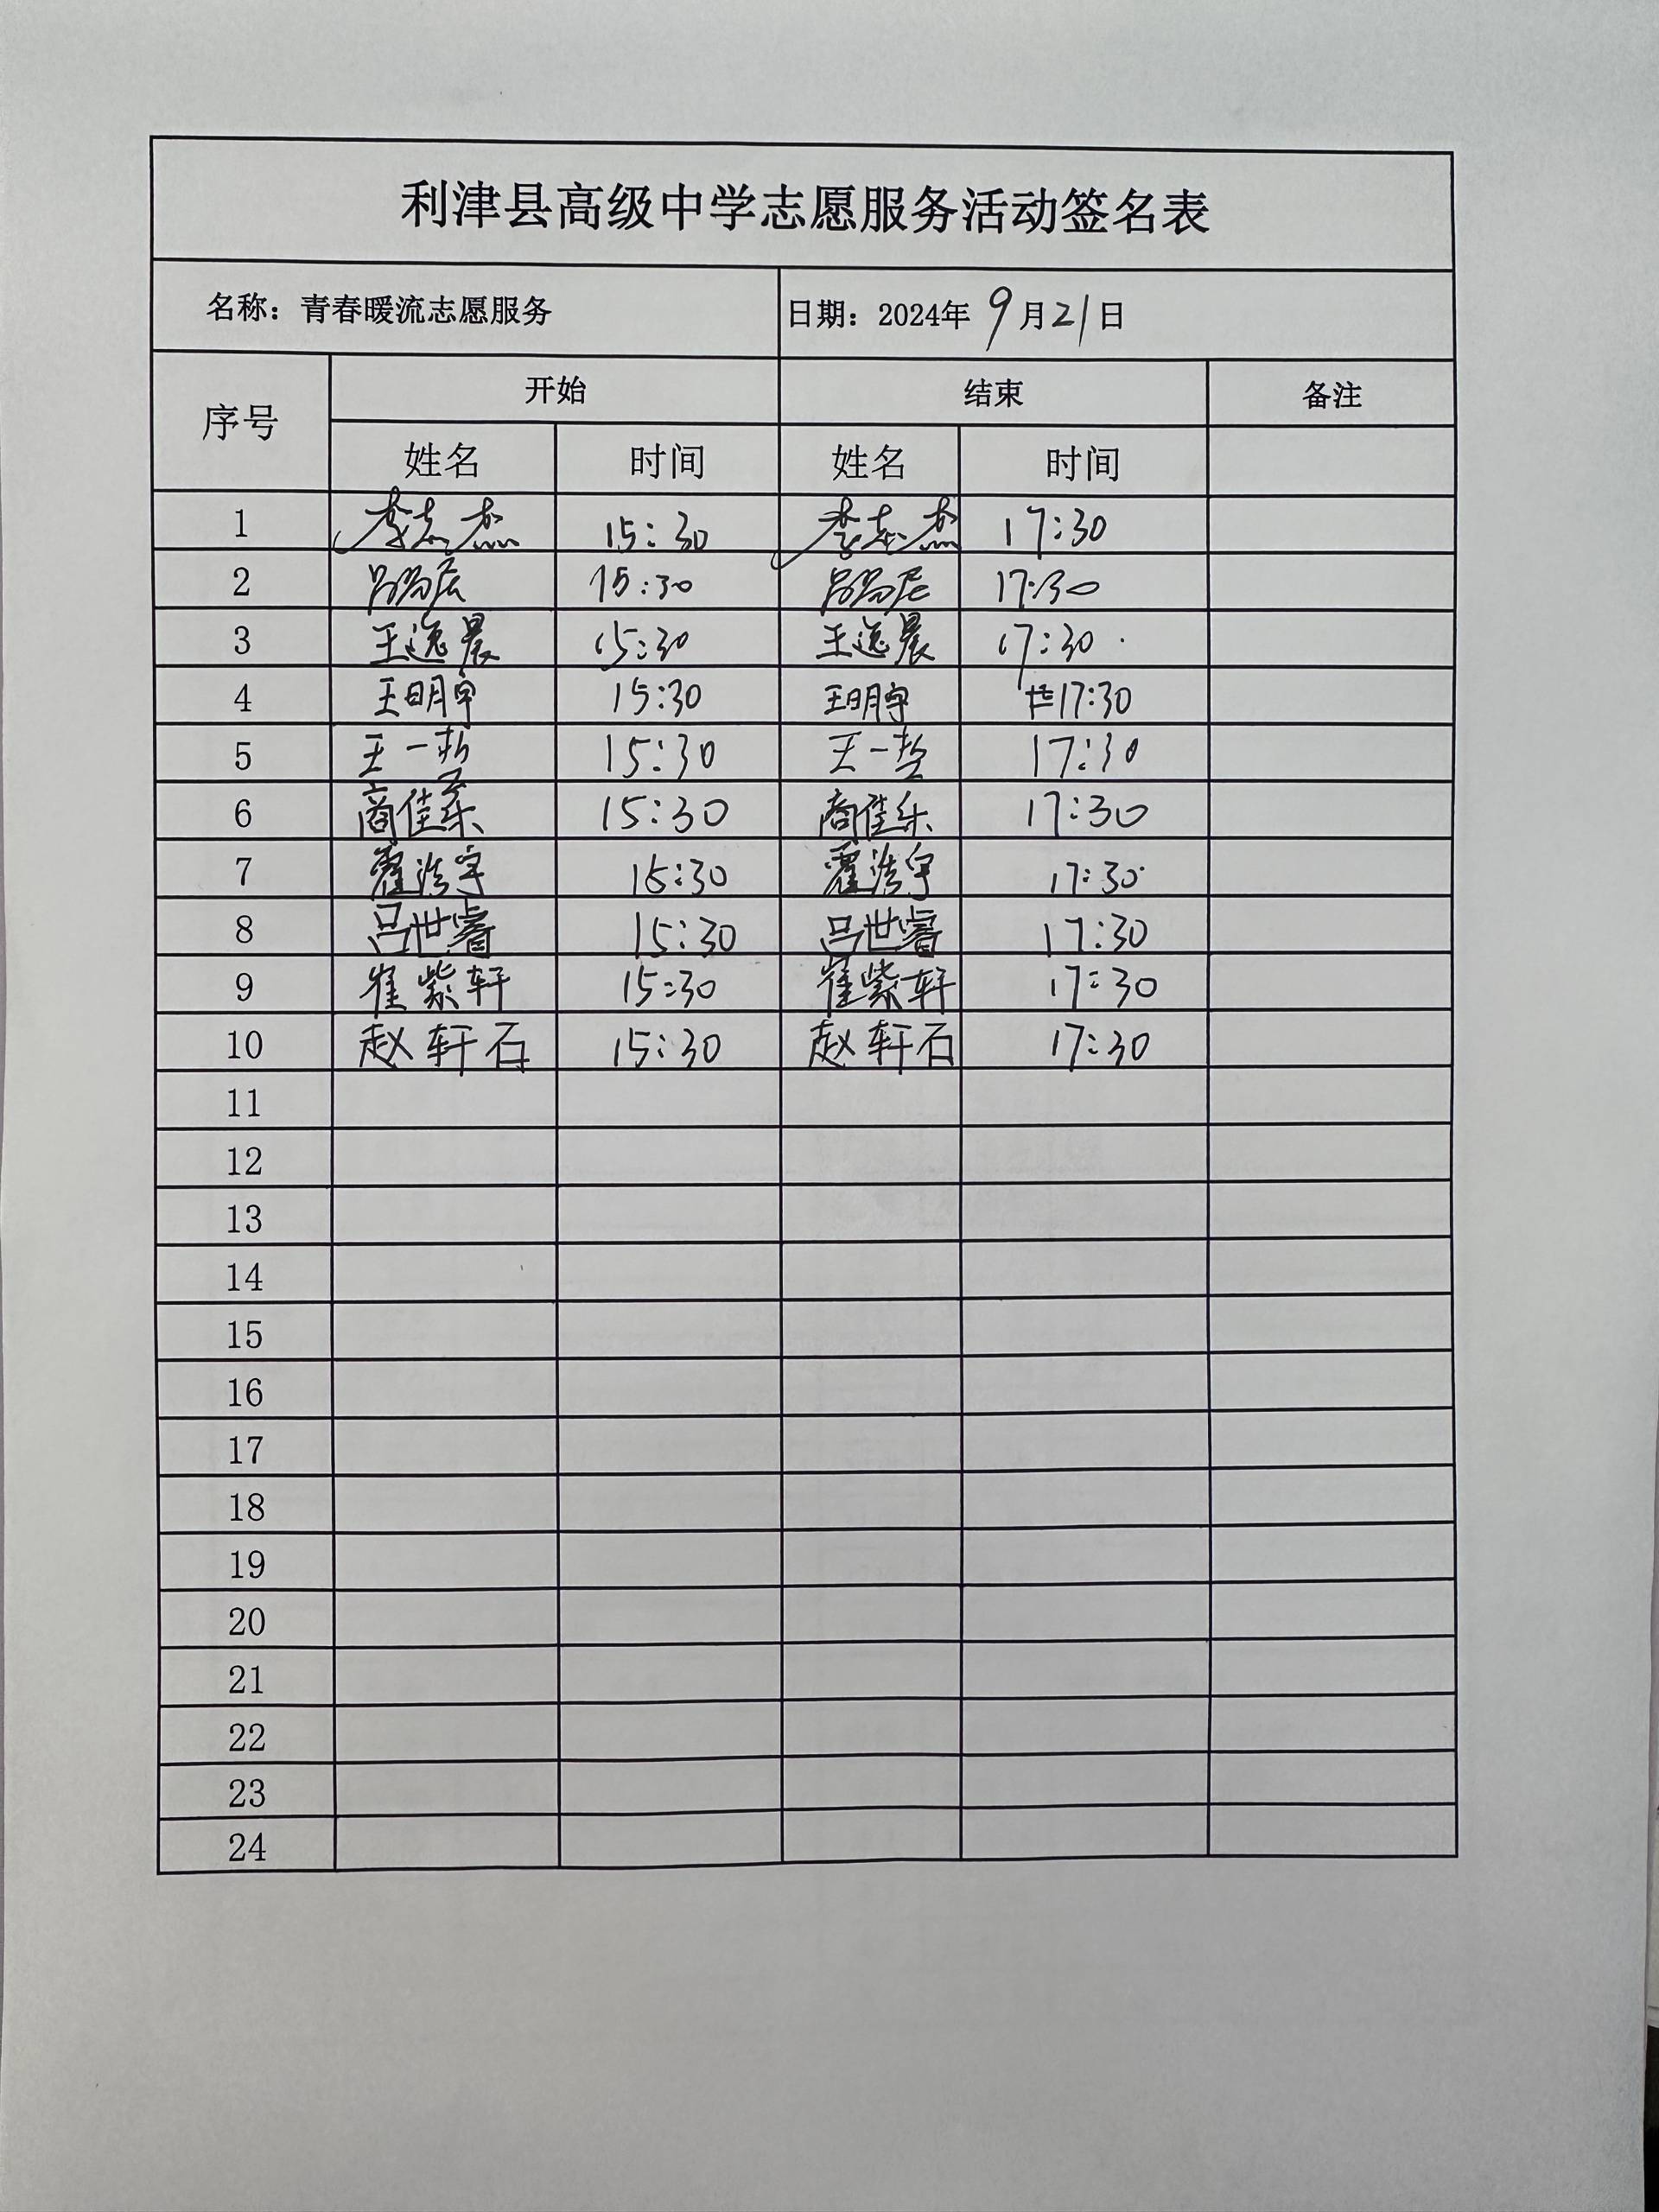 利津县高级中学志愿服务活动签名表
名称：青春暖流志愿服务 日期：2024年 9月21日
序号 开始 结束 备注
姓名 时间 姓名 时间
1 李志杰 15:30 李志杰 17:30
2 15:30 17:30
3 王逸晨 15:30 王逸晨 17:30
4 王明宇 15:30 王明宇 17:30
5 王一哲 15:30 王一哲 17:30
6 商佳乐 15:30 商佳乐 17:30
7 霍浩宇 15:30 霍浩宇 17:30
8 吕世睿 15:30 吕世睿 17:30
9 崔紫轩 15:30 崔紫轩 17:30
10 赵轩石 15:30 赵轩石 17:30
11
12
13
14
15
16
17
18
19
20
21
22
23
24